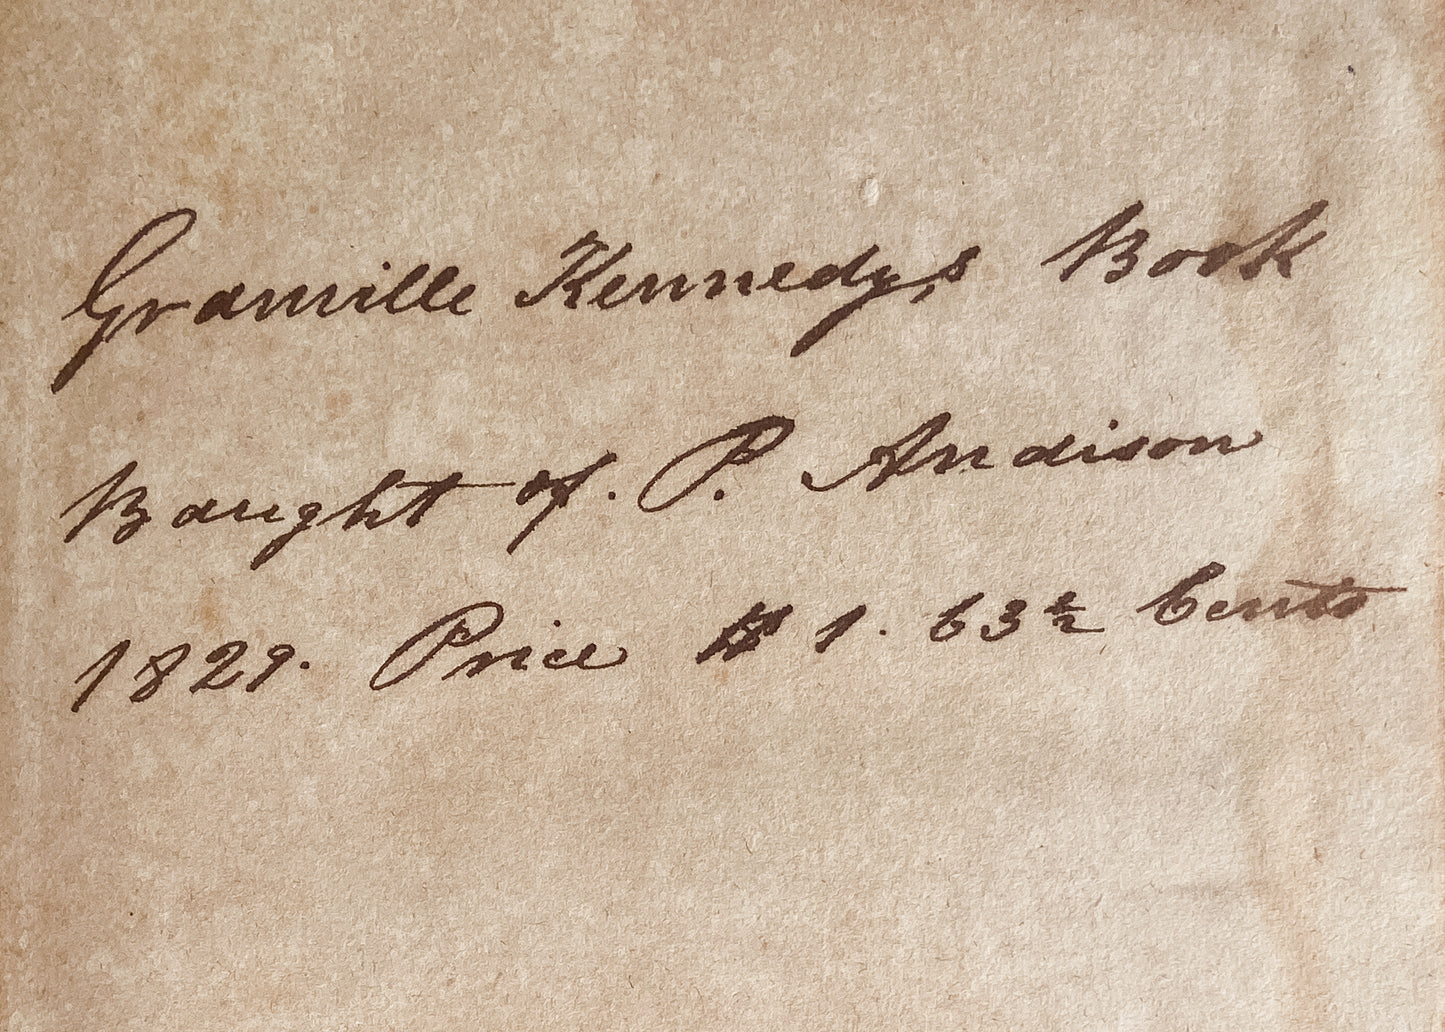 Granville Kennedy,s Book
Baught of. P. Andison
1829. Price $ 1. 63½ Cents